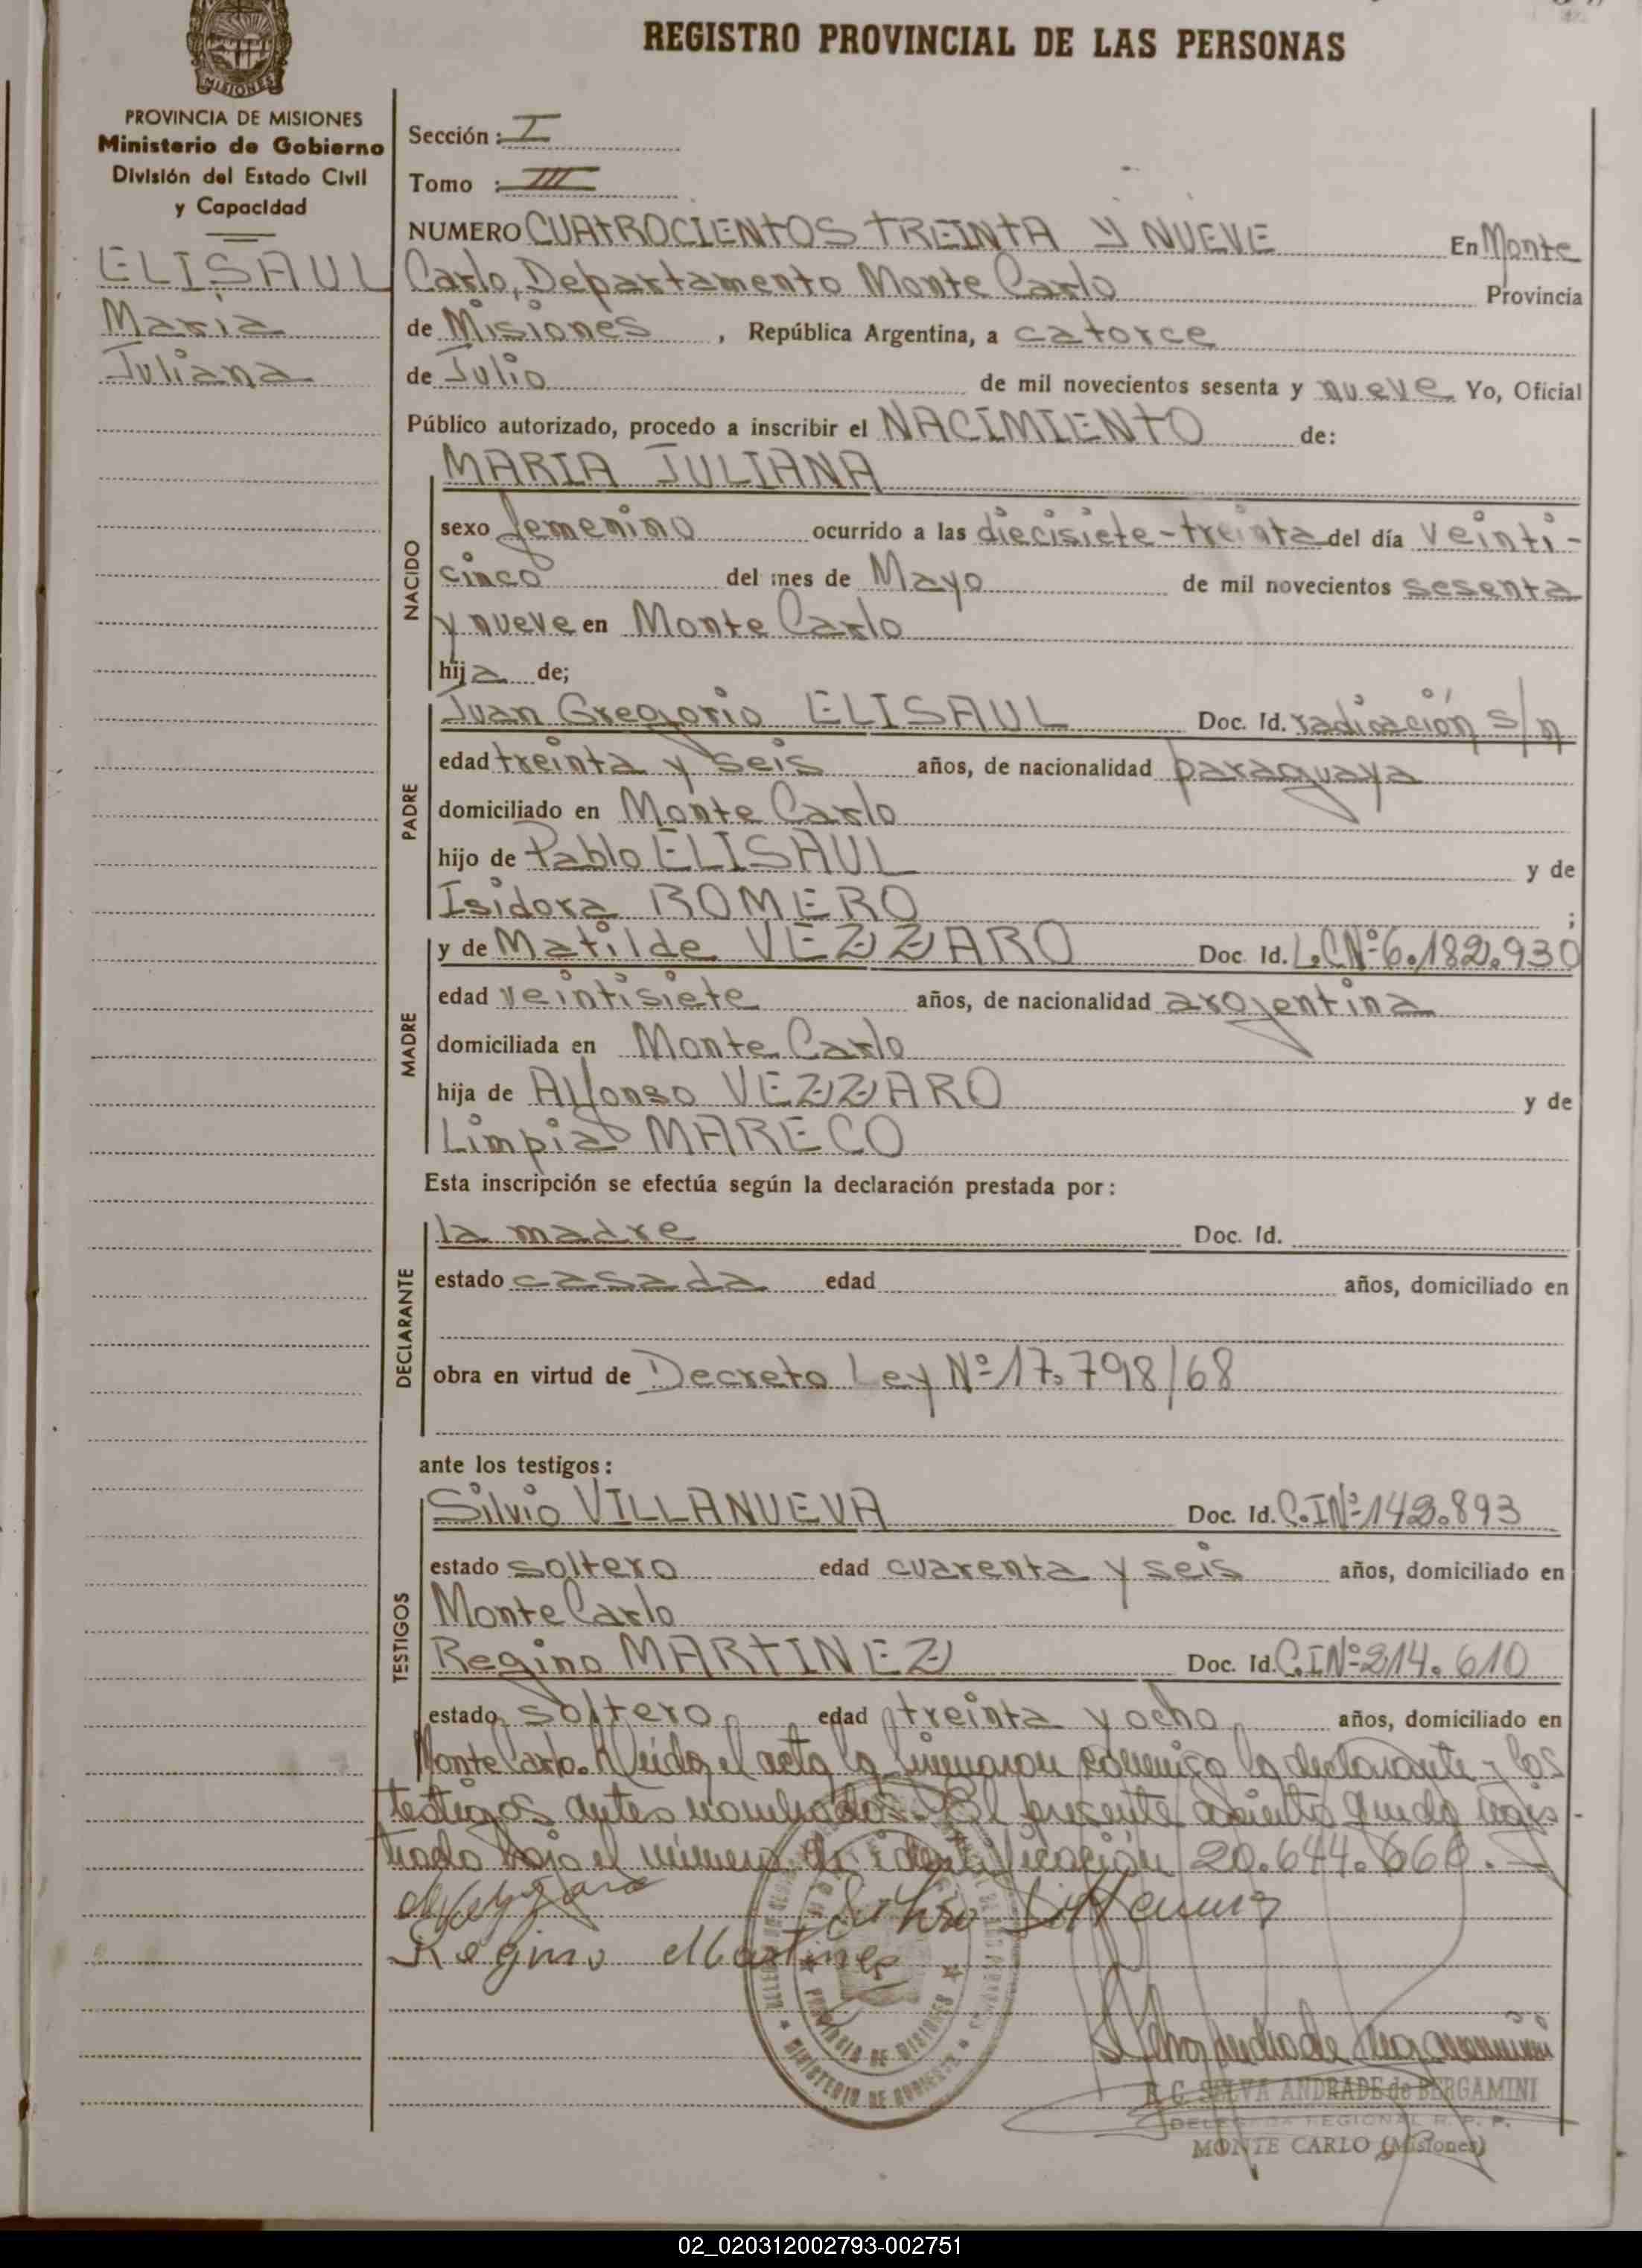 REGISTRO PROVINCIAL DE LAS PERSONAS
MISIONES
PROVINCIA DE MISIONES
Ministerio de Gobierno
División del Estado Civil
y Capacidad
ELISAUL
Maria
Juliana
Sección : I
Tomo : III
NUMERO CUATROCIENTOS TREINTA Y NUEVE En Monte
Carlo, Departamento Monte Carlo Provincia
de Misiones , República Argentina, a catorce
de Julio de mil novecientos sesenta y nueve Yo, Oficial
Público autorizado, procedo a inscribir el NACIMIENTO de:
NACIDO
MARIA JULIANA
sexo femenino ocurrido a las diecisiete-treinta del día veinti-
cinco del mes de Mayo de mil novecientos sesenta
y nueve en Monte Carlo
hija de;
PADRE
Juan Gregorio ELISAUL Doc. Id. radicación s/n
edad treinta y seis años, de nacionalidad paraguaya
domiciliado en Monte Carlo
hijo de Pablo ELISAUL y de
Isidora ROMERO ;
MADRE
y de Matilde VEZZARO Doc. Id. L.C Nº 6.182.930
edad veintisiete años, de nacionalidad argentina
domiciliada en Monte Carlo
hija de Alfonso VEZZARO y de
Limpia MARECO
Esta inscripción se efectúa según la declaración prestada por:
DECLARANTE
la madre Doc. Id.
estado casada edad años, domiciliado en
obra en virtud de Decreto Ley Nº 17.798/68
ante los testigos:
TESTIGOS
Silvio VILLANUEVA Doc. Id. C.I Nº 142.893
estado soltero edad cuarenta y seis años, domiciliado en
Monte Carlo
Regino MARTINEZ Doc. Id. C.I Nº 214.610
estado soltero edad treinta y ocho años, domiciliado en
Monte Carlo. Leída el acta la firmaron conmigo la declarante y los
testigos antes nombrados. El presente asiento queda regis-
trado bajo el número de identificación 20.644.660.-
Regino Martinez
PROVINCIA DE MISIONES
MINISTERIO DE GOBIERNO
R. G. SELVA ANDRADE de BERGAMINI
DELEGADA REGIONAL R. P. P.
MONTE CARLO (Misiones)
02_020312002793-002751